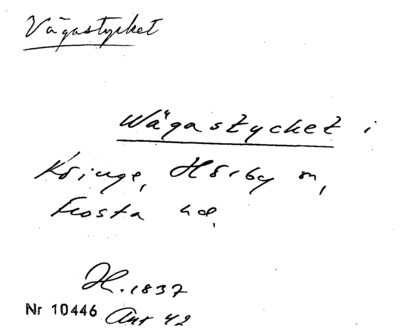 Vågastycket
Wågastycket i
Köinge, Hörby sn,
Frosta hd.
H. 1837
Nr 10446 Avt 42